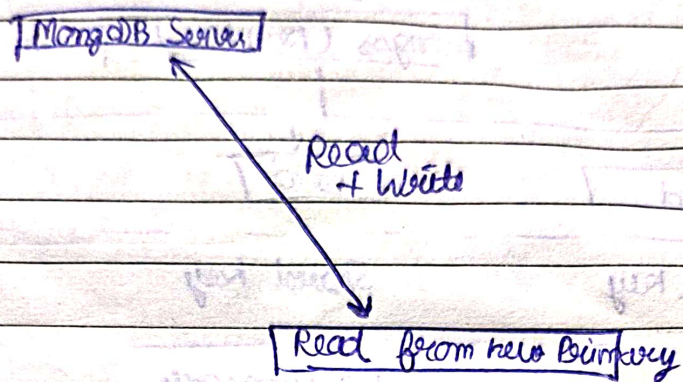 MongoDB Server
Read
+ Write
Read from new Primary